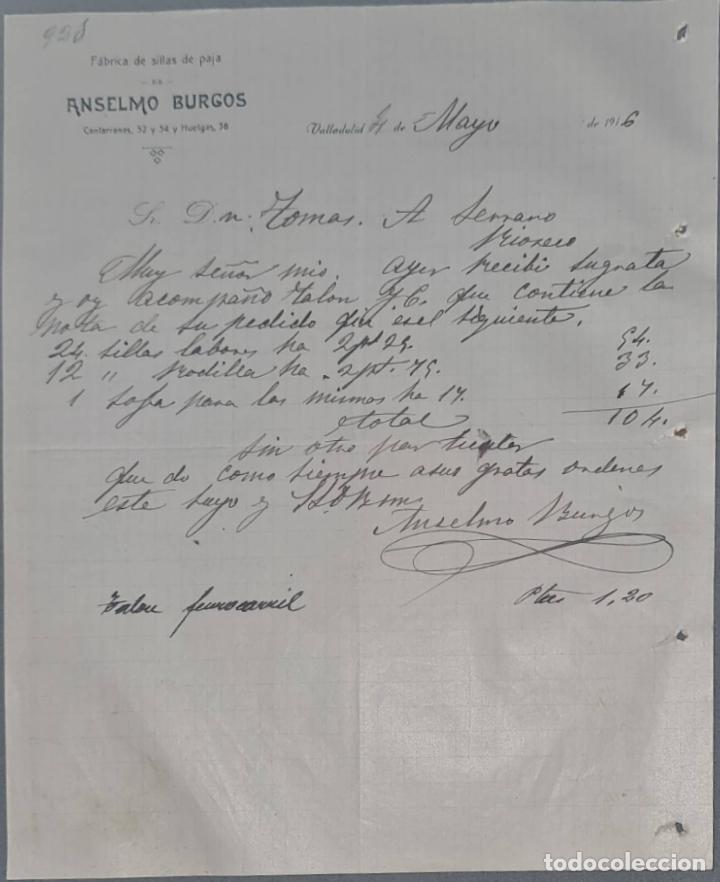 928
Fábrica de sillas de paja
DE
ANSELMO BURGOS
Cantarranas, 32 y 34 y Huelgas, 38
Valladolid 4 de Mayo de 1916
Sr. Dn. Tomas. A Serrano
Rioseco
Muy señor mio. ayer recibi su grata
y oy acompaño talon que contiene la
nota de su pedido que es el siguiente.
24 sillas labores ha 2 pt 25. 54.
12 " rodilla ha. 2 pt. 75. 33.
1 sofa para las mismas ha 17. 17.
total 104.
sin otro particular
que do como siempre a sus gratas ordenes
este suyo y
Anselmo Burgos
talon ferrocarril Ptas 1,20
todocoleccion